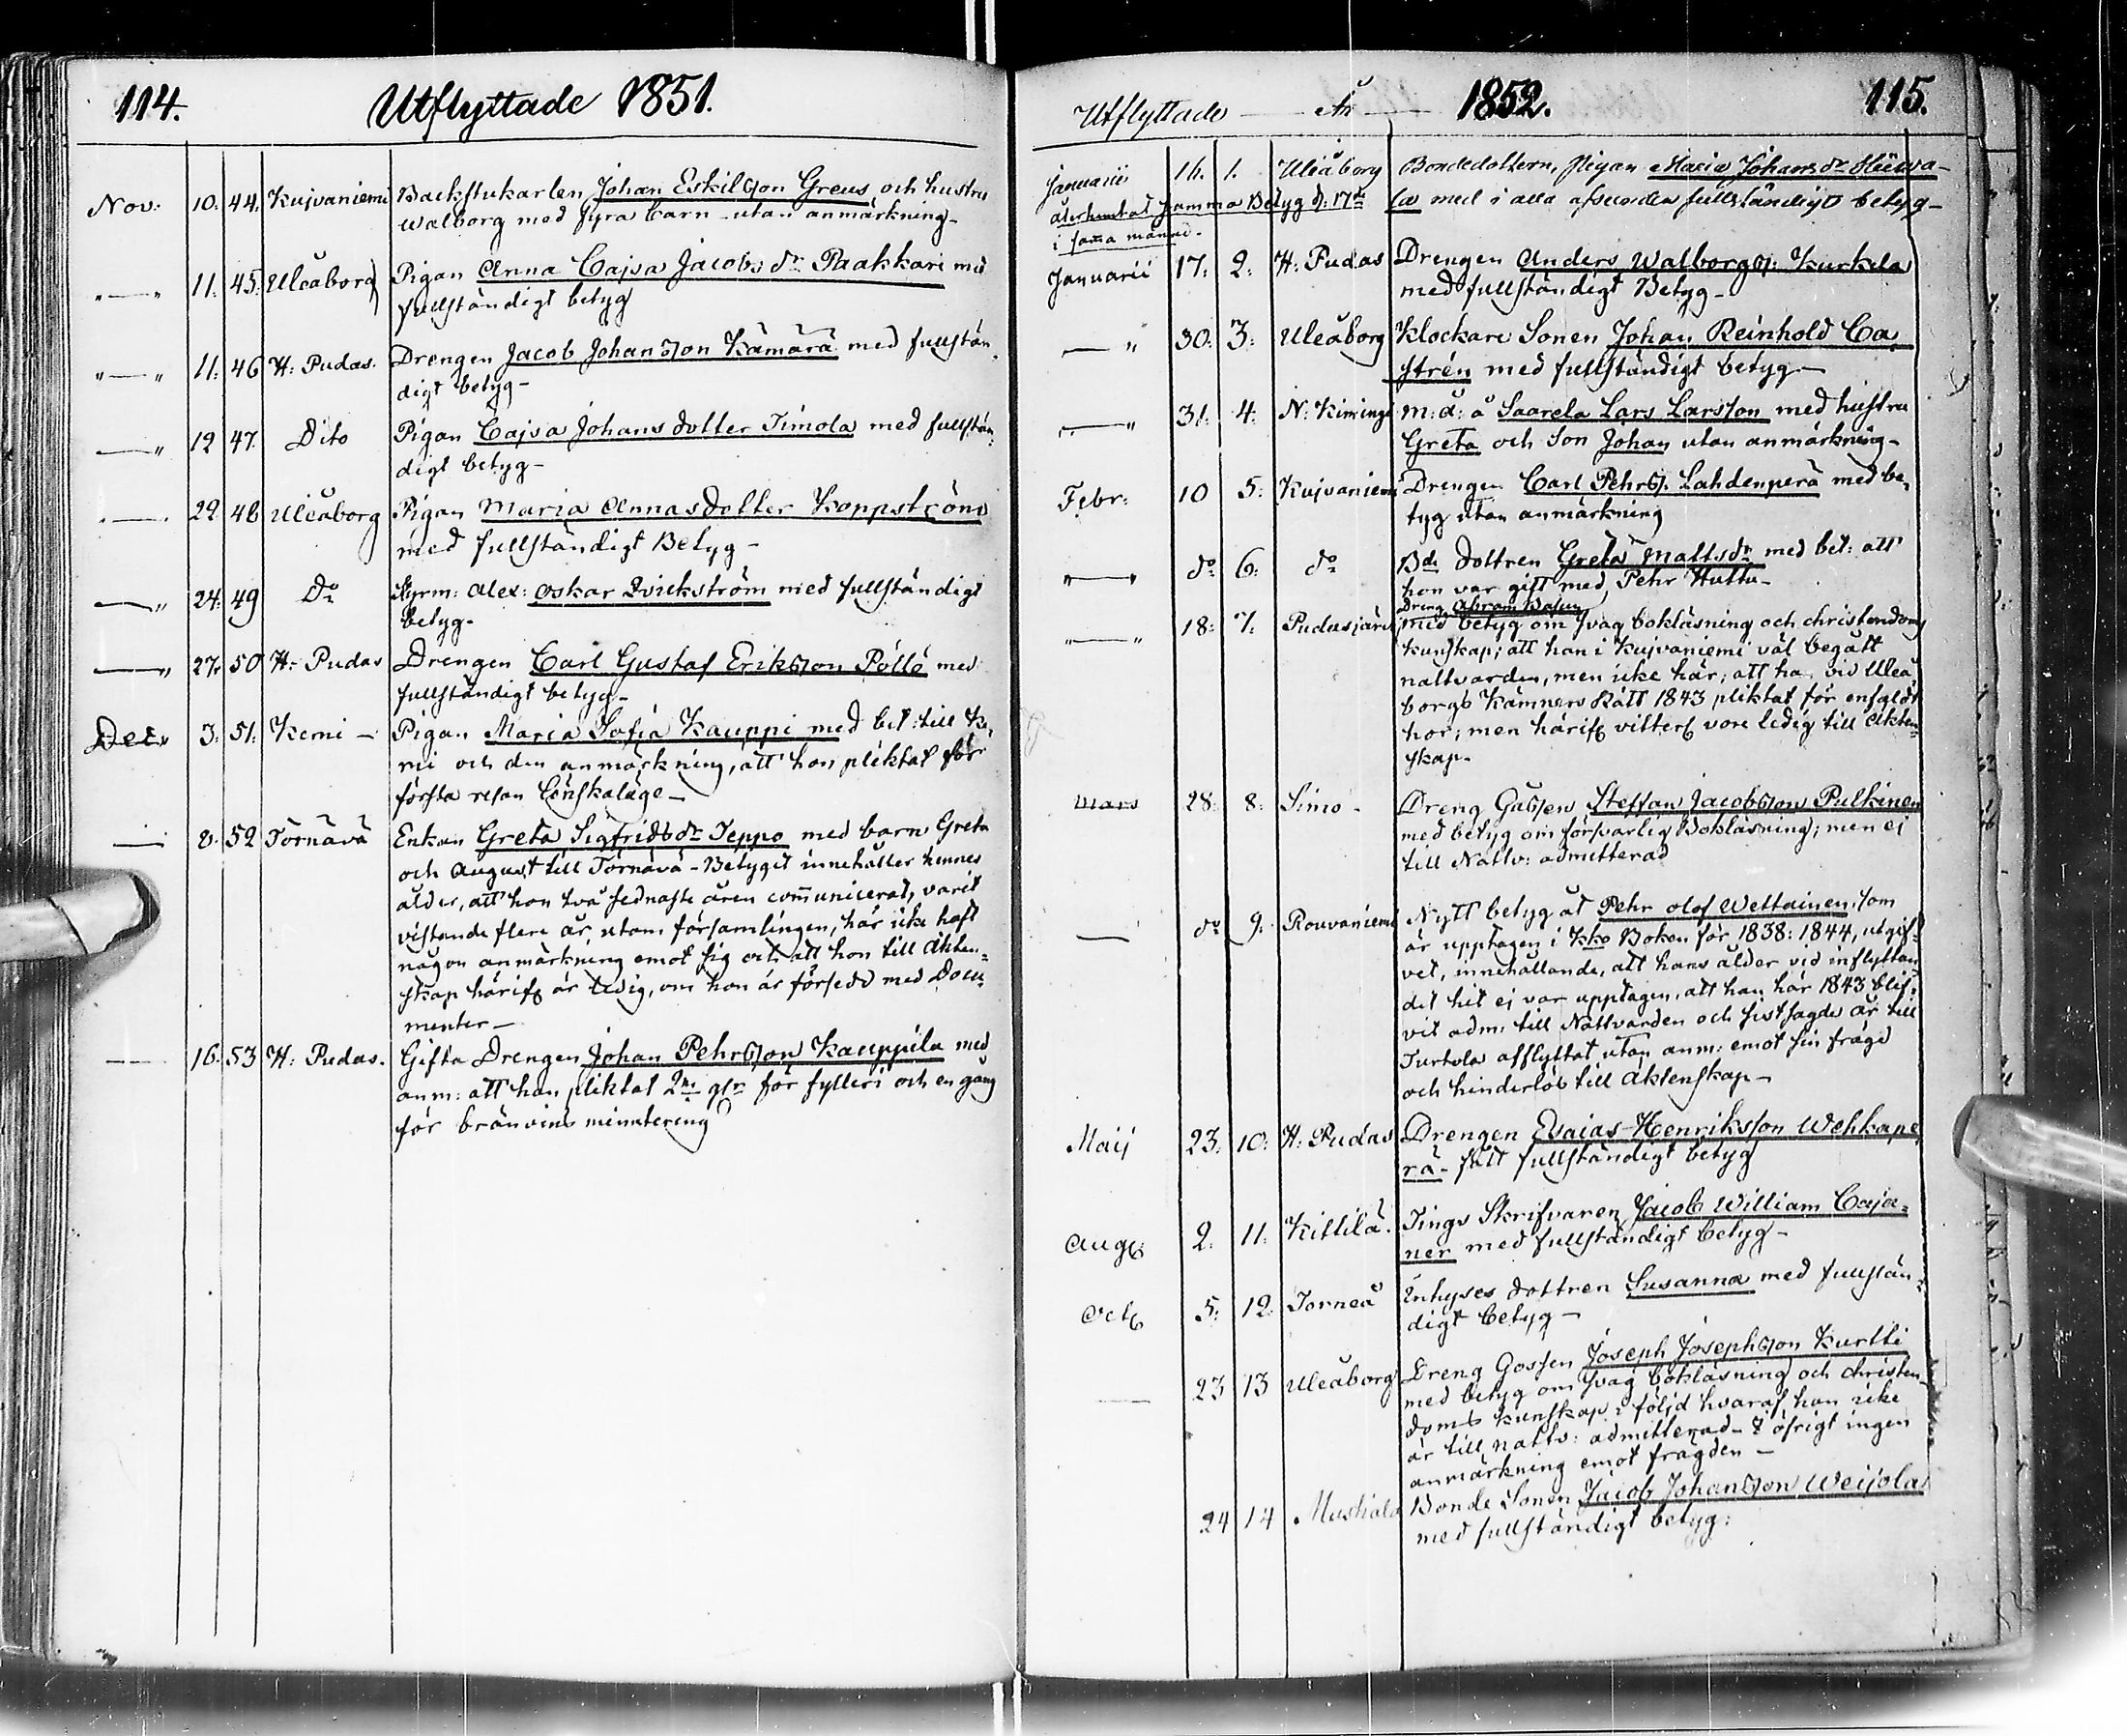 114. Utflyttade 1851.
Nov: 10. 44. Kuivaniemi Backstukarlen Johan Eskilsson Greus och hustru
Walborg med fyra barn utan anmärkning-
"—" 11. 45. Uleåborg Pigan Anna Cajsa Jacobs dr Paakkari med
fullständigt betyg
"—" 11. 46 H: Pudas. Drengen Jacob Johansson Kämärä med fullstän
digt betyg-
—" 12 47. Dito Pigan Cajsa Johans dotter Timola med fullstän=
digt betyg-
— 22 48 Uleåborg Pigan Maria Annasdotter Koppström
med fullständigt Betyg-
—" 24. 49 Do Styrm: Alex: Oskar Wickström med fullständigt
betyg-
—" 27. 50 H: Pudas Drengen Carl Gustaf Eriksson Pöllö med
fullständigt betyg-
Decr 3. 51. Kemi - Pigan Maria Sofia Kauppi med bet: till Ke,
mi och den anmärkning, att hon pliktat för
första resan Lönskaläge-
— 8. 52 Tornävä Enkan Greta Sigfrids dr Seppo med barn Greta
och August till Tornävä - Betyget innehåller hennes
ålder, att hon två sednaste åren communicerat, varit
vistande flere år utom församlingen, här icke haft
någon anmärkning emot sig och att hon till Äkten=
skap härifr är ledig, om hon är försedd med Docu
menter-
— 16. 53 H: Pudas. Gifta Drengen Johan Pehrsson Kauppila med
anm: att han pliktat 2ne ggr för fylleri och en gång
för bränvins minutering
Utflyttade — År — 1852. 115.
Januarii 16. 1. Uleåborg Bondedottern, Pigan Maria Johans dr
med i alla afseenden fullständigt betyg-
återhemtat samma Betyg d: 17de
i samma månad-
Januarii 17. 2. H: Pudas Drengen Anders Walborgs: Kurkela
med fullständigt Betyg-
—" 30: 3: Uleåborg Klockare Sonen Johan Reinhold Ca
strén med fullständigt betyg-
—" 31. 4: N: Kiminge m: d: å Saarela Lars Larsson med hustru
Greta och Son Johan utan anmärkning-
Febr: 10 5: Kuivaniemi Drengen Carl Pehrs: Lahdenperä med be,
tyg utan anmärkning
"—" do 6. do Bde dottren Greta Mattsdr med bet: att
hon var gift med Pehr Huttu-
Dreng Abram
"—" 18: 7. Pudasjärvi med betyg om svag bokläsning och christendoms
kunskap; att han i Kuivaniemi väl begått
nattvarden, men icke här; att han vid Uleå
borgs Kämners Rätt 1843 pliktat för enfaldt
hor; men härifr vore ledig till Äkten=
skap-
Mars 28. 8. Simo - Dreng Gåssen Steffan Jacobsson Pulkinen
med betyg om försvarlig Bokläsning; men ej
till Nattv: admitterad
— do 9. Rouvaniemi Nytt betyg åt Pehr Olof Wettainen, som
är upptagen i Kko Boken för 1838: 1844, utgif=
vet, innehållande, att hans ålder vid inflyttan
det hit ej var upptagen, att han här 1843 blif=
vit adm: till Nattvarden och sistsagde år till
Turtola afflyttat utan anm: emot sin frägd
och hinderlös till Äktenskap-
Maij 23. 10: H: Pudas Drengen Esaias Henriksson Wehkape
rä- fått fullständigt betyg
Aug 2. 11. Kittilä. Tings Skrifvaren Jacob William Caja=
ner med fullständigt betyg-
Oct 5. 12. Torneå Inhyses dottren Susanna med fullstän=
digt betyg-
— 23 13 Uleåborg Dreng Gossen Joseph Josephsson Kurtti
med betyg om svag bokläsning och christen-
doms kunskap i följd hvaraf han icke
är till nattv: admitterad- I öfrigt ingen
anmärkning emot frägden-
24 14 Bonde Sonen Jacob Johansson Weijola
med fullständigt betyg: